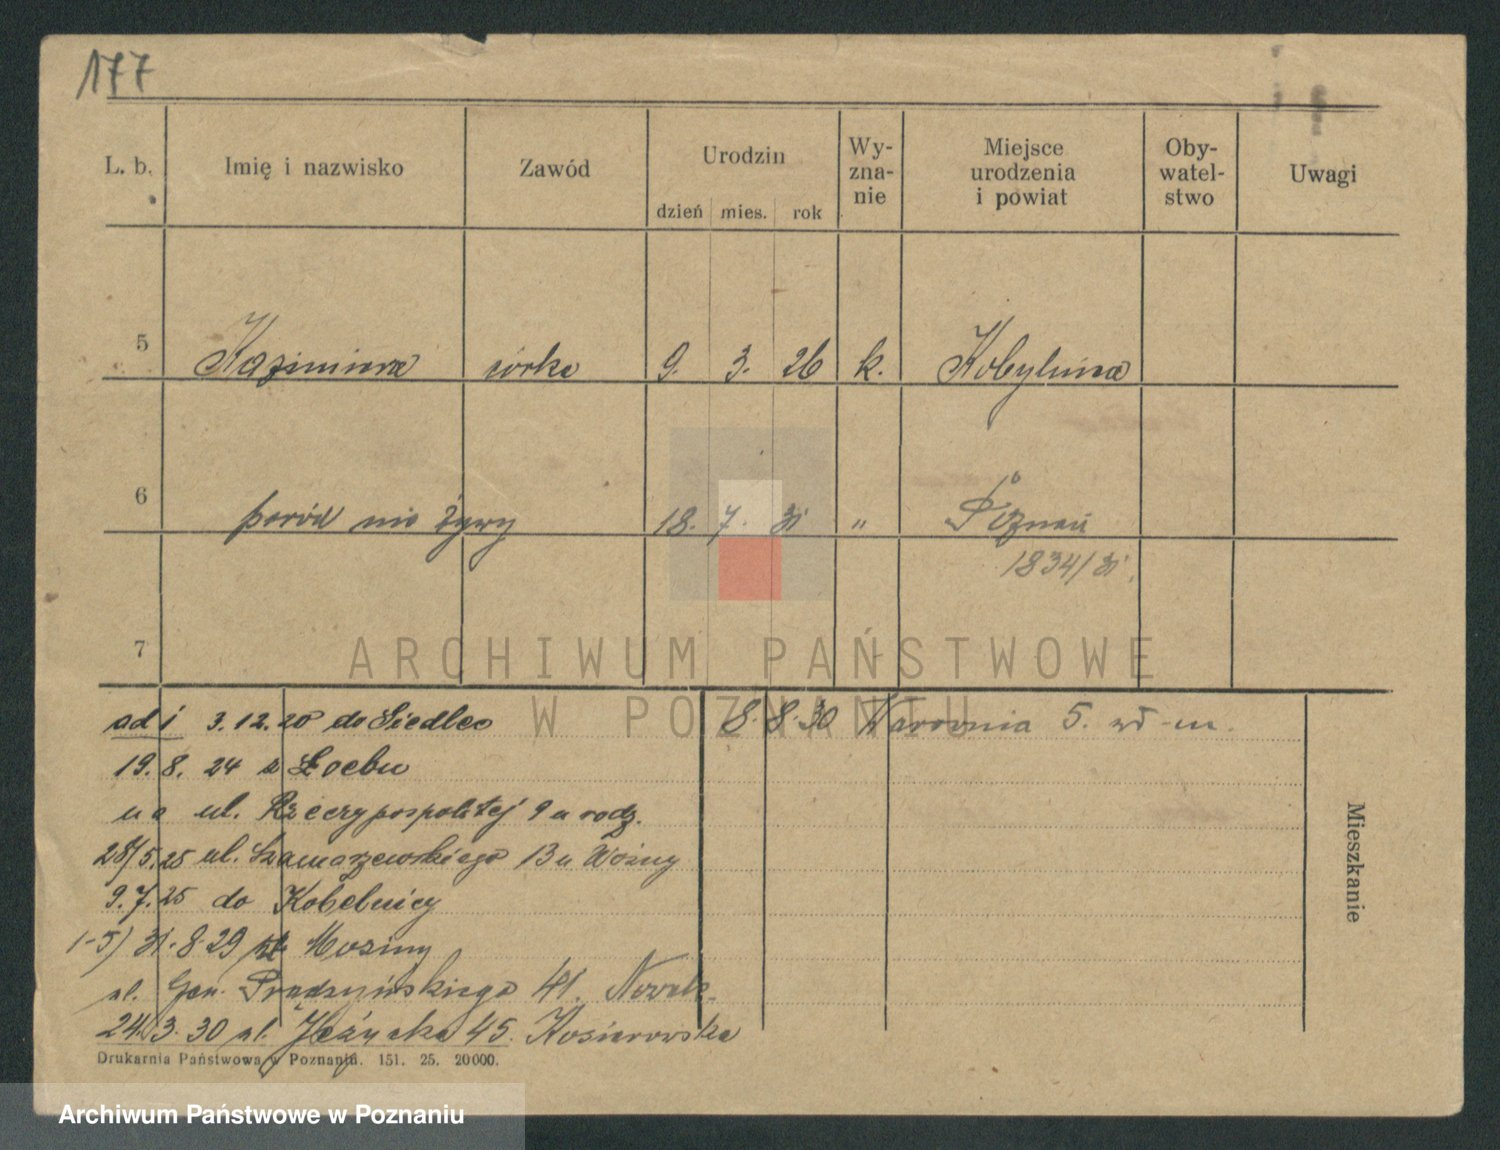 177
L. b. Imię i nazwisko Zawód Urodzin dzień mies. rok Wy-zna-nie Miejsce urodzenia i powiat Oby-watel-stwo Uwagi
5 Kazimiera córka 9. 3. 26 k. Kobylnica
6 poród nie żywy 18. 7. 31 " Poznań
1834/31.
7
ARCHIWUM PAŃSTWOWE
W POZNANIU
ad 1 3.12.20 do Siedlec
8.8.30 Warownia 5.
19.8.24 z
na ul. Rzeczypospolitej 9 u rodz.
28/5.25 ul. Szamarzewskiego 13 u Woźny
9.7.25 do Kobelnicy
1-5) 31.8.29 Mosiny
ul. Gen. Prądzyńskiego 41. Nowak.
24.3.30 ul. Jeżycka 45. Kosiorowska
Mieszkanie
Drukarnia Państwowa w Poznaniu. 151. 25. 20000.
Archiwum Państwowe w Poznaniu